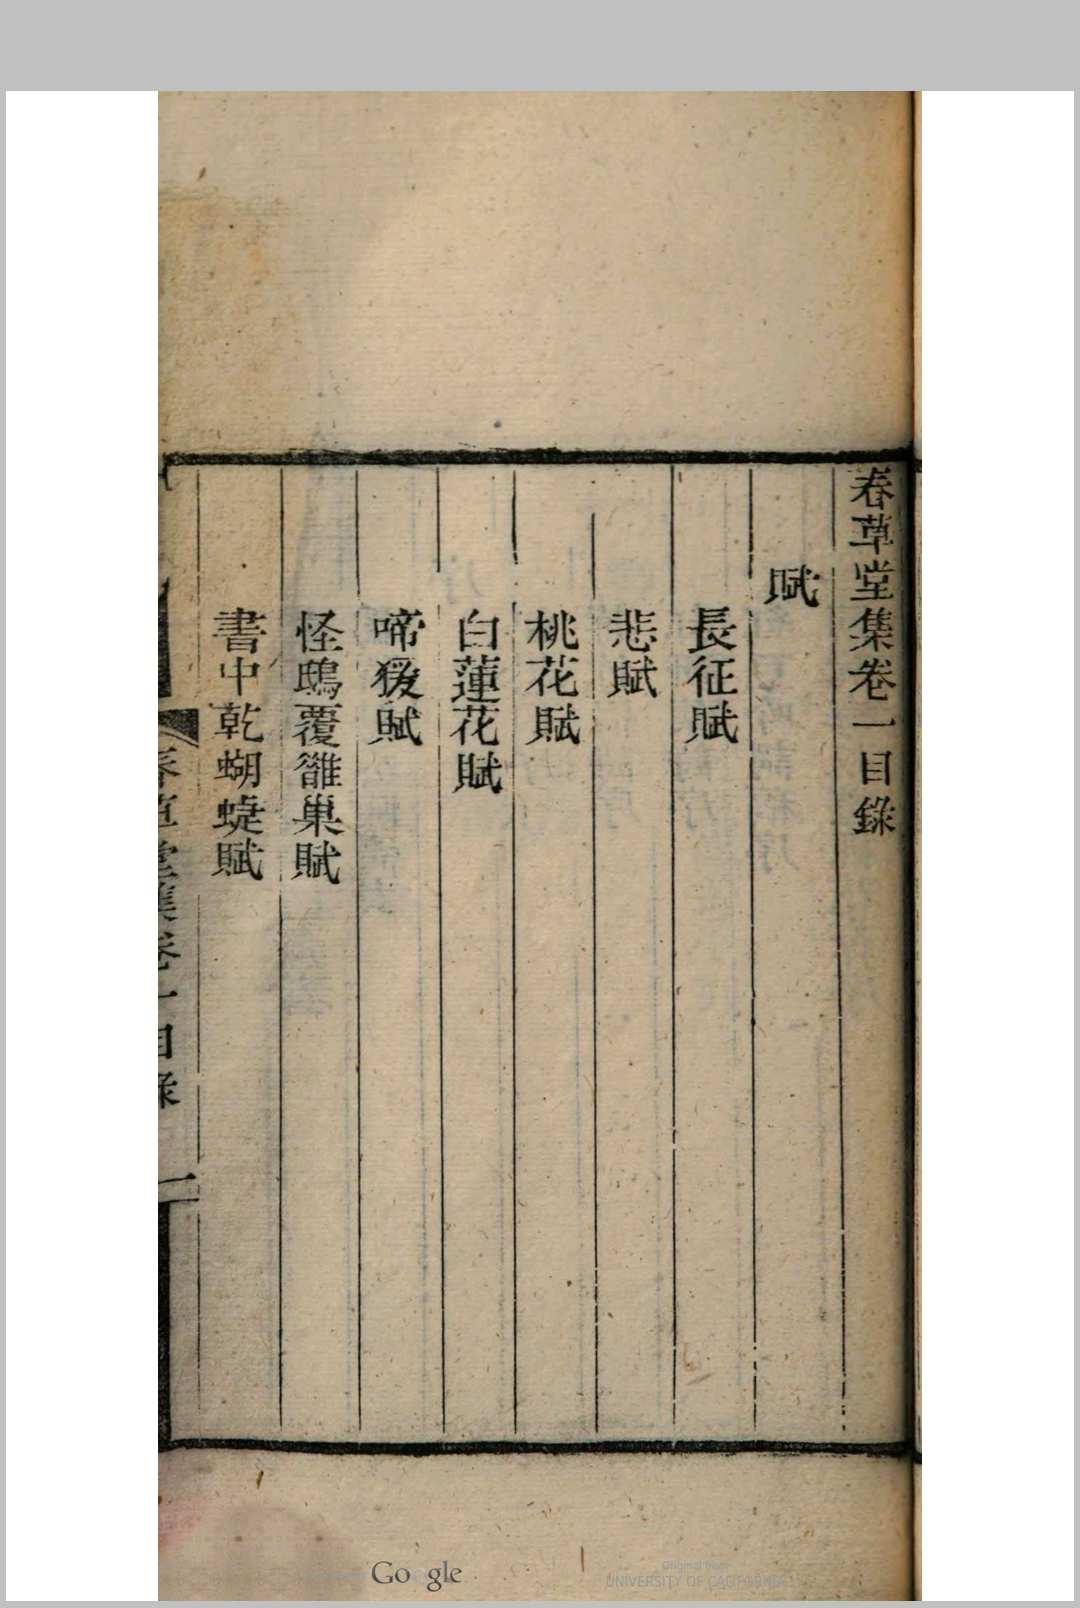 春草堂集卷一目錄
賦
長征賦
悲賦
桃花賦
白蓮花賦
啼猨賦
怪鴟覆雛巢賦
書中乾蝴蜨賦
春草堂集卷一目錄
一
Google
Original from
UNIVERSITY OF CALIFORNIA